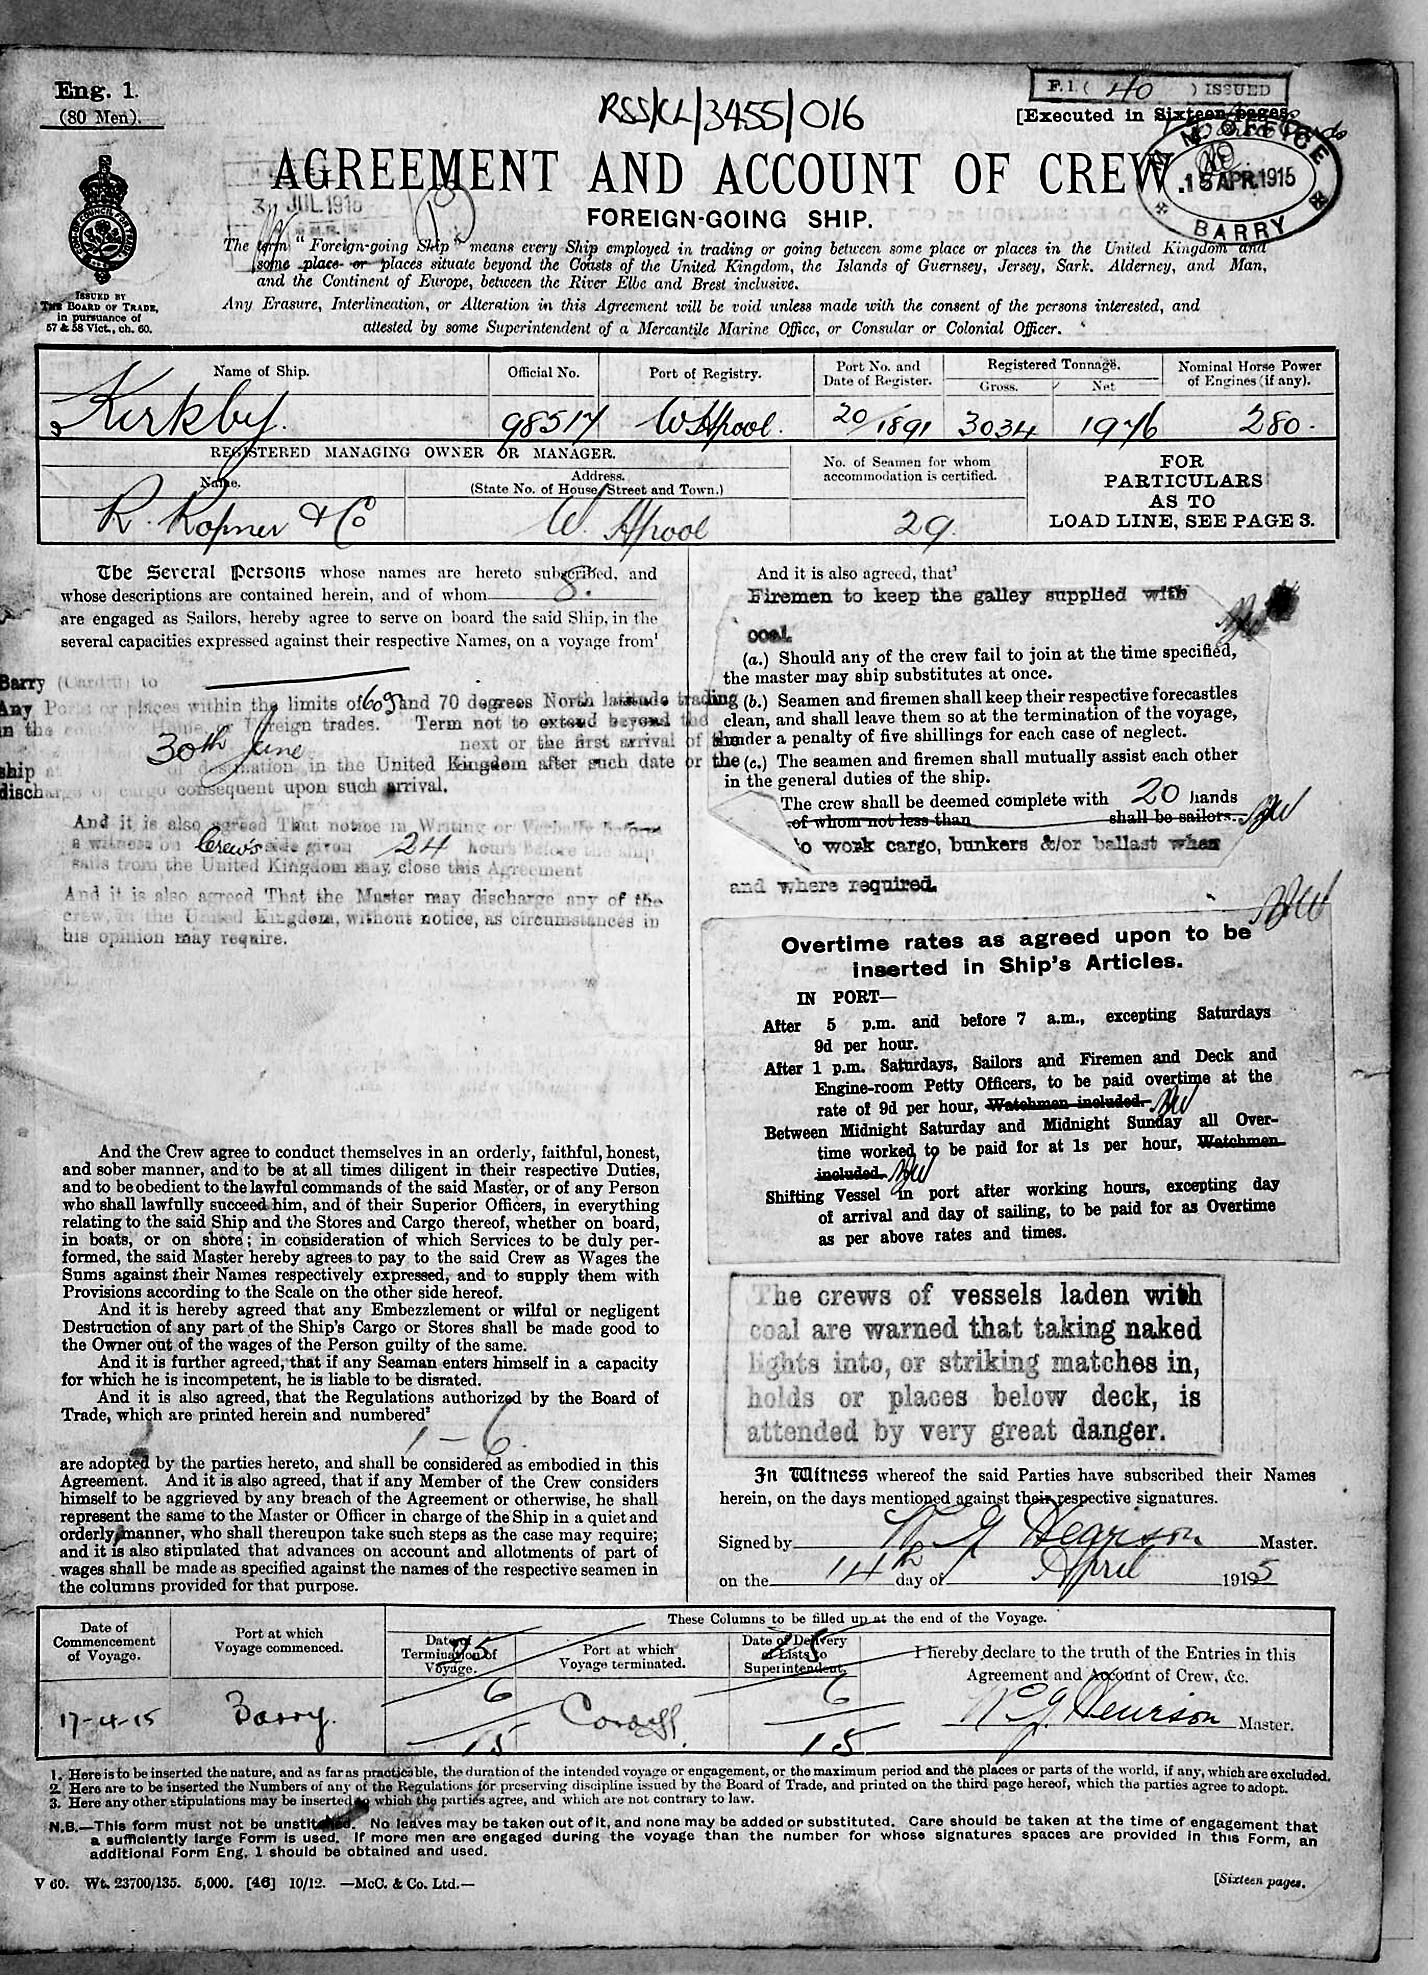 Eng. 1.
(80 Men).
RSS/CL/3455/016
F.1. ( 40 ) ISSUED
[Executed in Sixteen pages.
M. M. OFFICE
15 APR. 1915
BARRY
AGREEMENT AND ACCOUNT OF CREW
JUL. 1915
FOREIGN-GOING SHIP.
ISSUED BY
THE BOARD OF TRADE,
in pursuance of
57 & 58 Vict., ch. 60.
The term "Foreign-going Ship" means every Ship employed in trading or going between some place or places in the United Kingdom and
some place or places situate beyond the Coasts of the United Kingdom, the Islands of Guernsey, Jersey, Sark, Alderney, and Man,
and the Continent of Europe, between the River Elbe and Brest inclusive.
Any Erasure, Interlineation, or Alteration in this Agreement will be void unless made with the consent of the persons interested, and
attested by some Superintendent of a Mercantile Marine Office, or Consular or Colonial Officer.
Name of Ship. Official No. Port of Registry. Port No. and Date of Register. Registered Tonnage. Gross. Net Nominal Horse Power of Engines (if any).
Kirkby. 98517 W Hpool. 20/1891 3034 1976 280.
REGISTERED MANAGING OWNER OR MANAGER.
Name. Address. (State No. of House, Street and Town.) No. of Seamen for whom accommodation is certified.
R. Ropner & Co W. Hpool 29.
FOR
PARTICULARS
AS TO
LOAD LINE, SEE PAGE 3.
The Several Persons whose names are hereto subscribed, and
whose descriptions are contained herein, and of whom 8.
are engaged as Sailors, hereby agree to serve on board the said Ship, in the
several capacities expressed against their respective Names, on a voyage from¹
Barry (Cardiff) to
Any Ports or places within the limits of 60 S and 70 degrees North latitude trading
in the Home or Foreign trades. Term not to extend beyond the
30th June next or the first arrival of the
ship at of destination in the United Kingdom after such date or the
discharge of cargo consequent upon such arrival.
And it is also agreed That notice in Writing or Verbally before
a witness on Crews side given 24 hours before the ship
sails from the United Kingdom may close this Agreement
And it is also agreed That the Master may discharge any of the
crew, in the United Kingdom, without notice, as circumstances in
his opinion may require.
And the Crew agree to conduct themselves in an orderly, faithful, honest,
and sober manner, and to be at all times diligent in their respective Duties,
and to be obedient to the lawful commands of the said Master, or of any Person
who shall lawfully succeed him, and of their Superior Officers, in everything
relating to the said Ship and the Stores and Cargo thereof, whether on board,
in boats, or on shore; in consideration of which Services to be duly per-
formed, the said Master hereby agrees to pay to the said Crew as Wages the
Sums against their Names respectively expressed, and to supply them with
Provisions according to the Scale on the other side hereof.
And it is hereby agreed that any Embezzlement or wilful or negligent
Destruction of any part of the Ship's Cargo or Stores shall be made good to
the Owner out of the wages of the Person guilty of the same.
And it is further agreed, that if any Seaman enters himself in a capacity
for which he is incompetent, he is liable to be disrated.
And it is also agreed, that the Regulations authorized by the Board of
Trade, which are printed herein and numbered²
1 – 6
are adopted by the parties hereto, and shall be considered as embodied in this
Agreement. And it is also agreed, that if any Member of the Crew considers
himself to be aggrieved by any breach of the Agreement or otherwise, he shall
represent the same to the Master or Officer in charge of the Ship in a quiet and
orderly manner, who shall thereupon take such steps as the case may require;
and it is also stipulated that advances on account and allotments of part of
wages shall be made as specified against the names of the respective seamen in
the columns provided for that purpose.
And it is also agreed, that³
Firemen to keep the galley supplied with
coal.
(a.) Should any of the crew fail to join at the time specified,
the master may ship substitutes at once.
(b.) Seamen and firemen shall keep their respective forecastles
clean, and shall leave them so at the termination of the voyage,
under a penalty of five shillings for each case of neglect.
(c.) The seamen and firemen shall mutually assist each other
in the general duties of the ship.
The crew shall be deemed complete with 20 hands
of whom not less than shall be sailors.
to work cargo, bunkers &/or ballast when
and where required.
Overtime rates as agreed upon to be
inserted in Ship's Articles.
IN PORT—
After 5 p.m. and before 7 a.m., excepting Saturdays
9d per hour.
After 1 p.m. Saturdays, Sailors and Firemen and Deck and
Engine-room Petty Officers, to be paid overtime at the
rate of 9d per hour, Watchmen included.
Between Midnight Saturday and Midnight Sunday all Over-
time worked to be paid for at 1s per hour, Watchmen
included.
Shifting Vessel in port after working hours, excepting day
of arrival and day of sailing, to be paid for as Overtime
as per above rates and times.
The crews of vessels laden with
coal are warned that taking naked
lights into, or striking matches in,
holds or places below deck, is
attended by very great danger.
In Witness whereof the said Parties have subscribed their Names
herein, on the days mentioned against their respective signatures.
Signed by W G Hewison Master.
on the 14th day of April 1915
These Columns to be filled up at the end of the Voyage.
Date of Commencement of Voyage. Port at which Voyage commenced. Date of Termination of Voyage. Port at which Voyage terminated. Date of Delivery of Lists to Superintendent. I hereby declare to the truth of the Entries in this Agreement and Account of Crew, &c.
17-4-15 Barry. 25/6/15 Cardiff. 25/6/15 W G Hewison Master.
1. Here is to be inserted the nature, and as far as practicable, the duration of the intended voyage or engagement, or the maximum period and the places or parts of the world, if any, which are excluded.
2. Here are to be inserted the Numbers of any of the Regulations for preserving discipline issued by the Board of Trade, and printed on the third page hereof, which the parties agree to adopt.
3. Here any other stipulations may be inserted to which the parties agree, and which are not contrary to law.
N.B.—This form must not be unstitched. No leaves may be taken out of it, and none may be added or substituted. Care should be taken at the time of engagement that
a sufficiently large Form is used. If more men are engaged during the voyage than the number for whose signatures spaces are provided in this Form, an
additional Form Eng. 1 should be obtained and used.
V 60. Wt. 23700/135. 5,000. [46] 10/12. —McC. & Co. Ltd.—
[Sixteen pages.